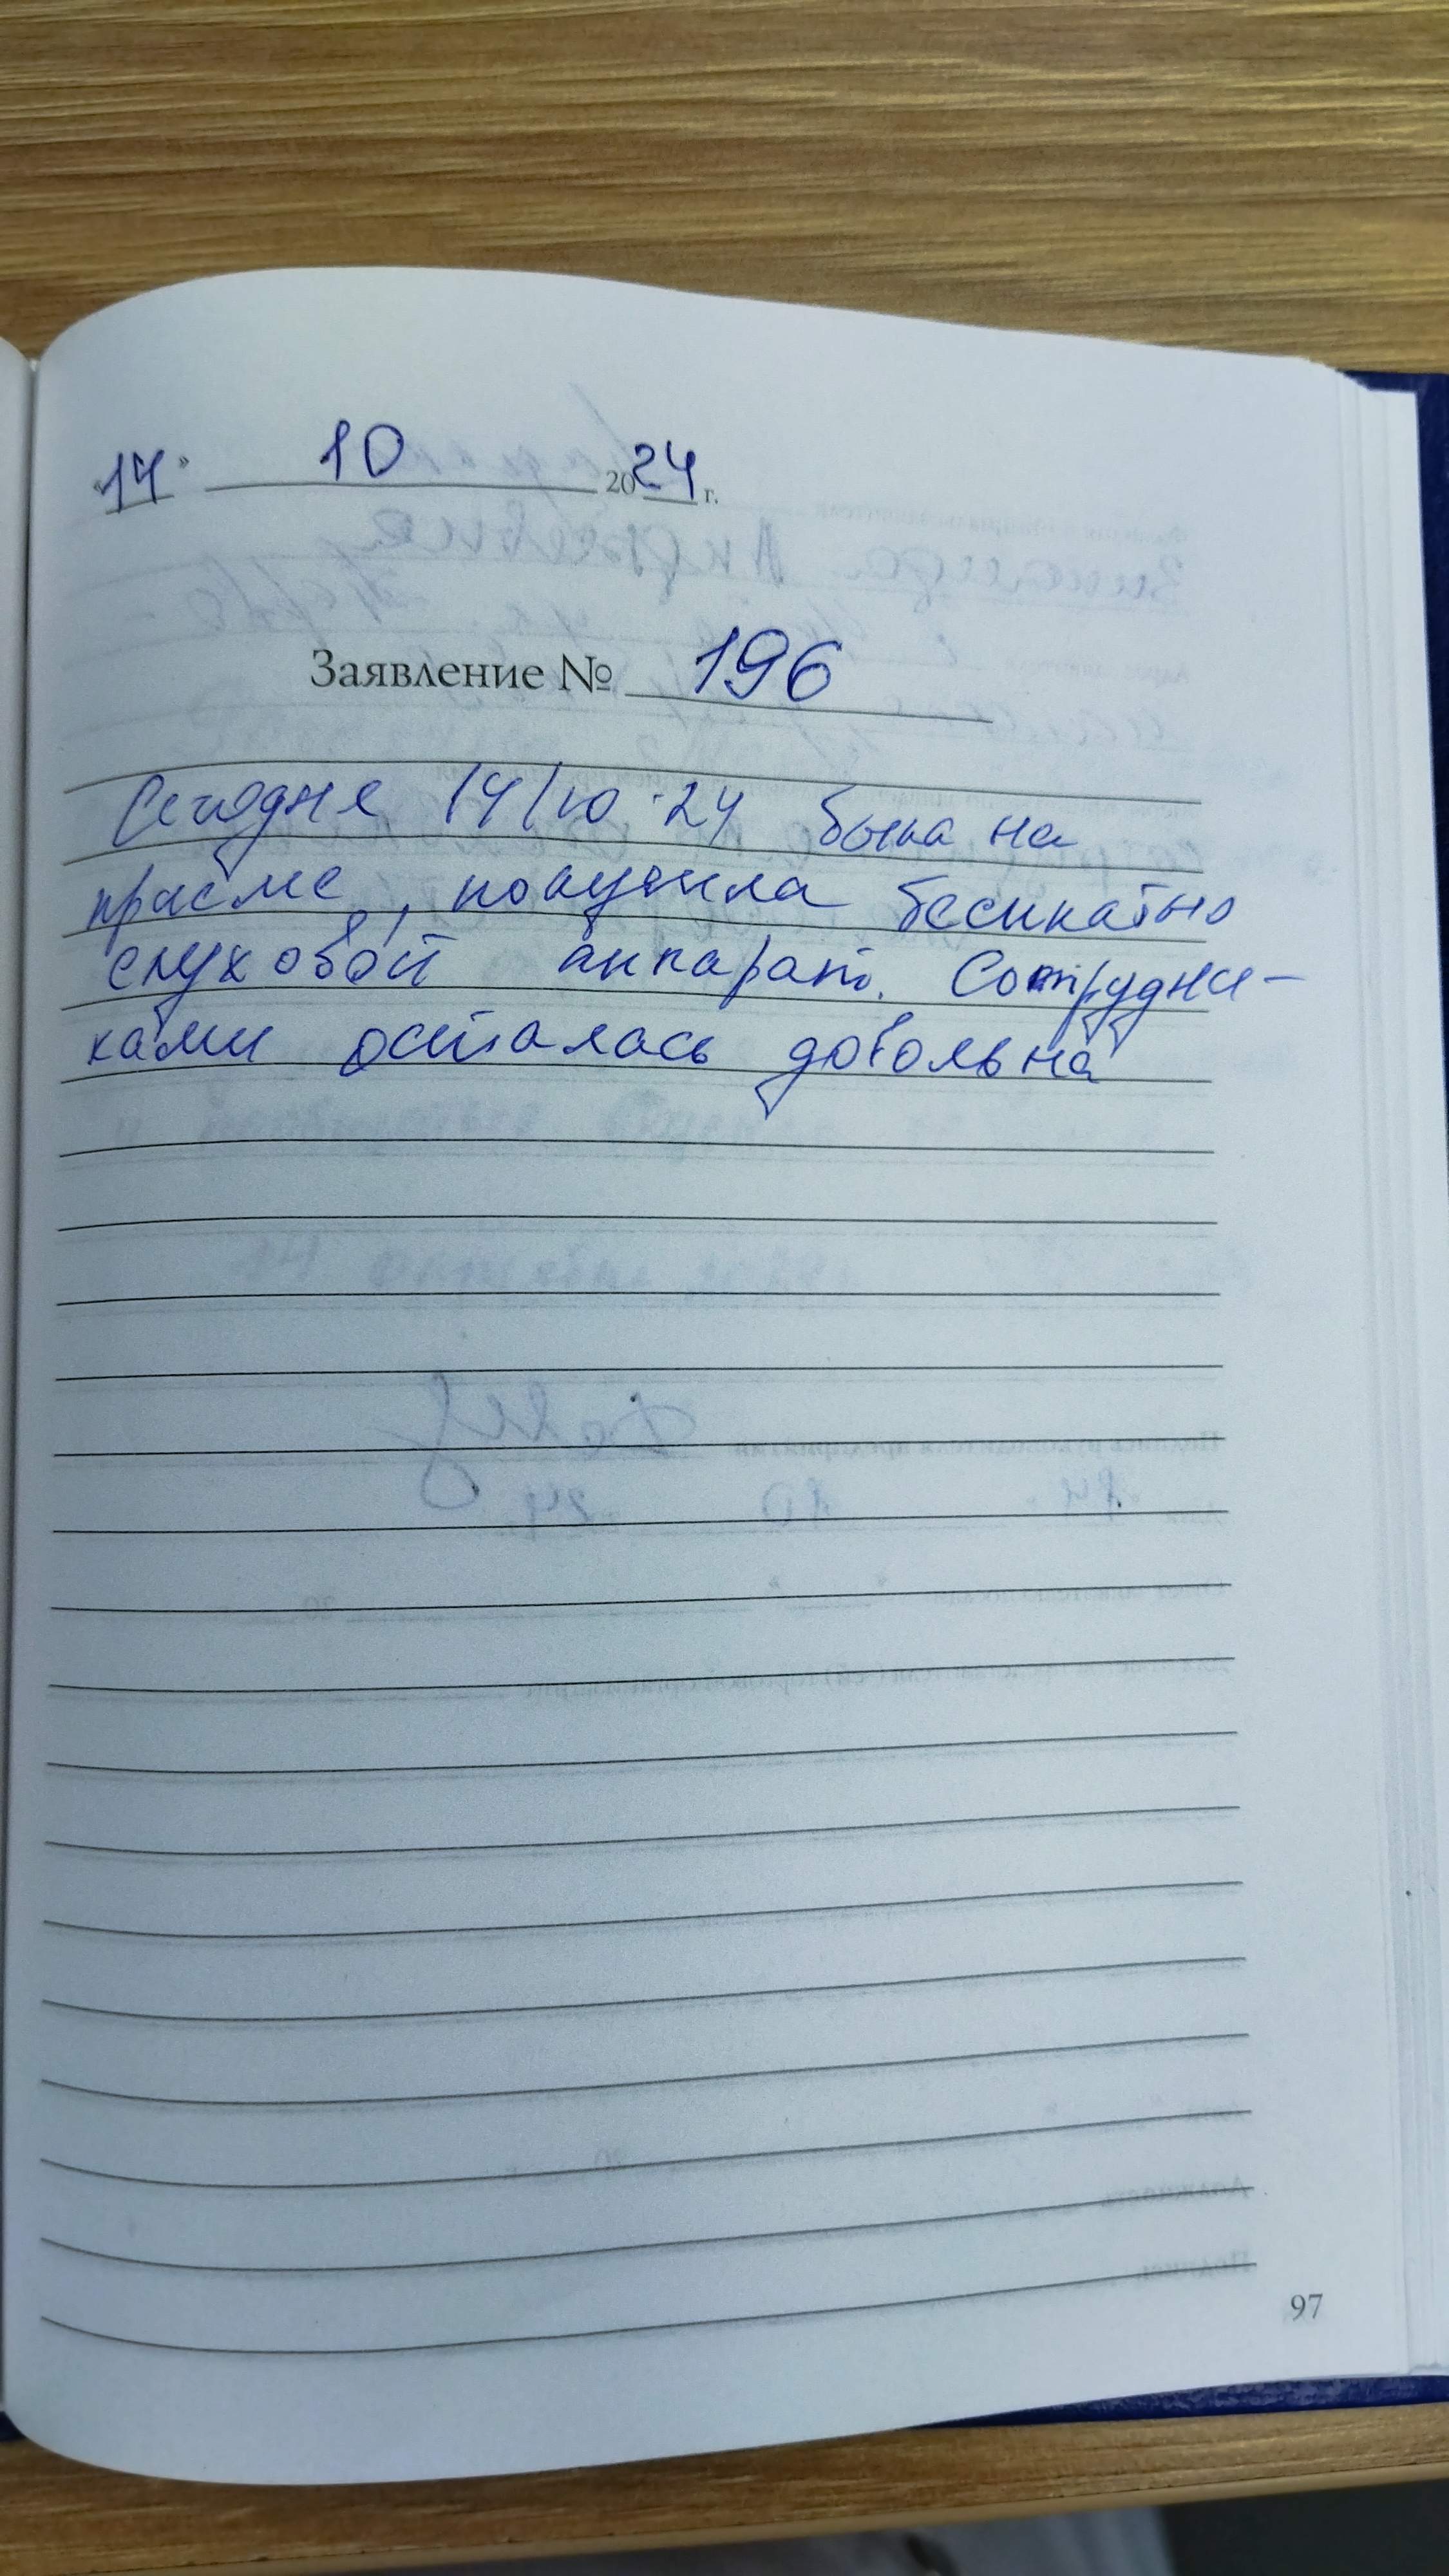 "14" 10 2024 г.
Заявление № 196
Сегодня 14/10.24 была на
приеме, получила бесплатно
слуховой аппарат. Сотрудни-
ками осталась довольна
97